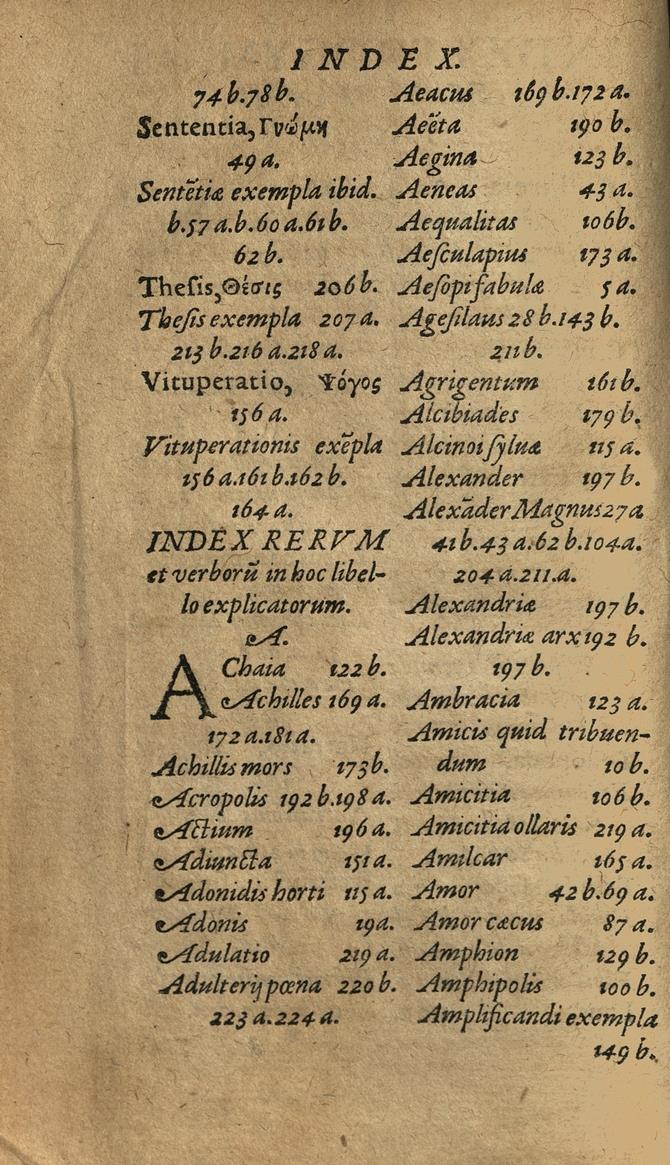 INDEX.
74 b.78 b.
Sententia, Γνώμη
49 a.
Sentẽtiæ exempla ibid.
b.57 a.b.60 a.61 b.
62 b.
Theſis, Θέσις 206 b.
Theſis exempla 207 a.
213 b.216 a.218 a.
Vituperatio, Ψόγος
156 a.
Vituperationis exẽpla
156 a.161 b.162 b.
164 a.
INDEX RERVM
et verborũ in hoc libel-
lo explicatorum.
A.
AChaia 122 b.
Achilles 169 a.
172 a.181 a.
Achillis mors 173 b.
Acropolis 192 b.198 a.
Actium 196 a.
Adiuncta 151 a.
Adonidis horti 115 a.
Adonis 19 a.
Adulatio 219 a.
Adulterij pœna 220 b.
223 a.224 a.
Aeacus 169 b.172 a.
Aeëta 190 b.
Aegina 123 b.
Aeneas 43 a.
Aequalitas 106 b.
Aeſculapius 173 a.
Aeſopi fabulæ 5 a.
Ageſilaus 28 b.143 b.
211 b.
Agrigentum 161 b.
Alcibiades 179 b.
Alcinoi ſyluæ 115 a.
Alexander 197 b.
Alexãder Magnus 27 a
41 b.43 a.62 b.104 a.
204 a.211.a.
Alexandriæ 197 b.
Alexandriæ arx 192 b.
197 b.
Ambracia 123 a.
Amicis quid tribuen-
dum 10 b.
Amicitia 106 b.
Amicitia ollaris 219 a.
Amilcar 165 a.
Amor 42 b.69 a.
Amor cæcus 87 a.
Amphion 129 b.
Amphipolis 100 b.
Amplificandi exempla
149 b.